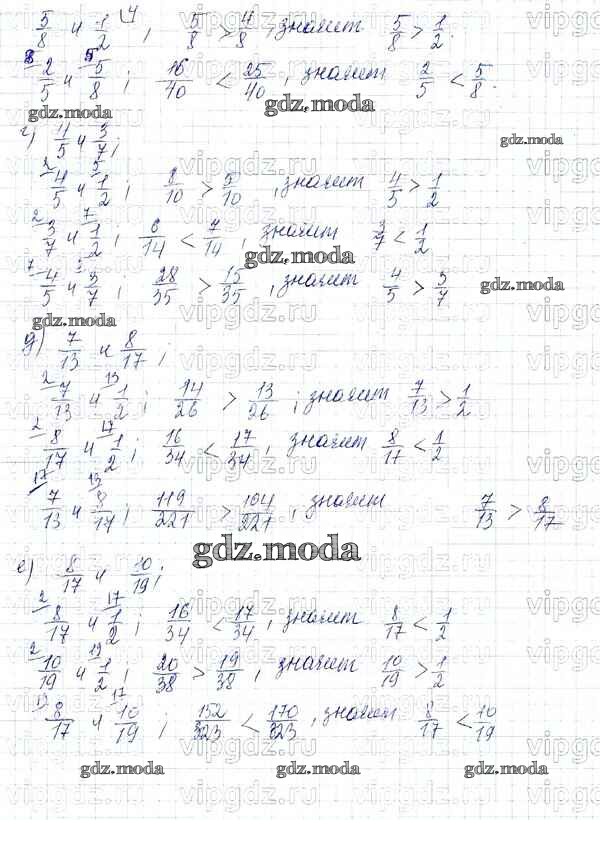 5/8 и 1/2 ; 5/8 > 4/8 , значит 5/8 > 1/2.
2/5 и 5/8 ; 16/40 < 25/40 , значит 2/5 < 5/8.
gdz.moda
г) 4/5 и 3/7 ;
4/5 и 1/2 ; 8/10 > 5/10 , значит 4/5 > 1/2
3/7 и 1/2 ; 6/14 < 7/14 , значит 3/7 < 1/2
gdz.moda
4/5 и 3/7 ; 28/35 > 15/35 , значит 4/5 > 3/7
gdz.moda
д) 7/13 и 8/17 ;
7/13 и 1/2 ; 14/26 > 13/26 ; значит 7/13 > 1/2
8/17 и 1/2 ; 16/34 < 17/34 , значит 8/17 < 1/2
7/13 и 8/17 ; 119/221 > 104/221 , значит 7/13 > 8/17
gdz.moda
е) 8/17 и 10/19 ;
8/17 и 1/2 ; 16/34 < 17/34 , значит 8/17 < 1/2
10/19 и 1/2 ; 20/38 > 19/38 , значит 10/19 > 1/2
8/17 и 10/19 ; 152/323 < 170/323 , значит 8/17 < 10/19
gdz.moda gdz.moda gdz.moda